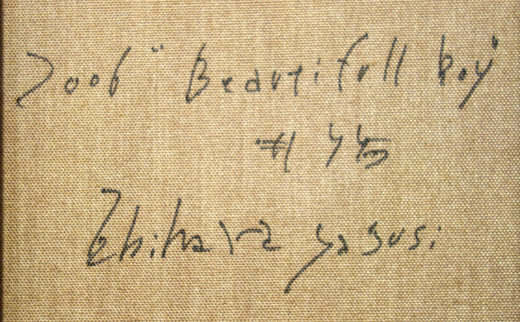 2006 "Beautifull boy"
Ebihara yasusi